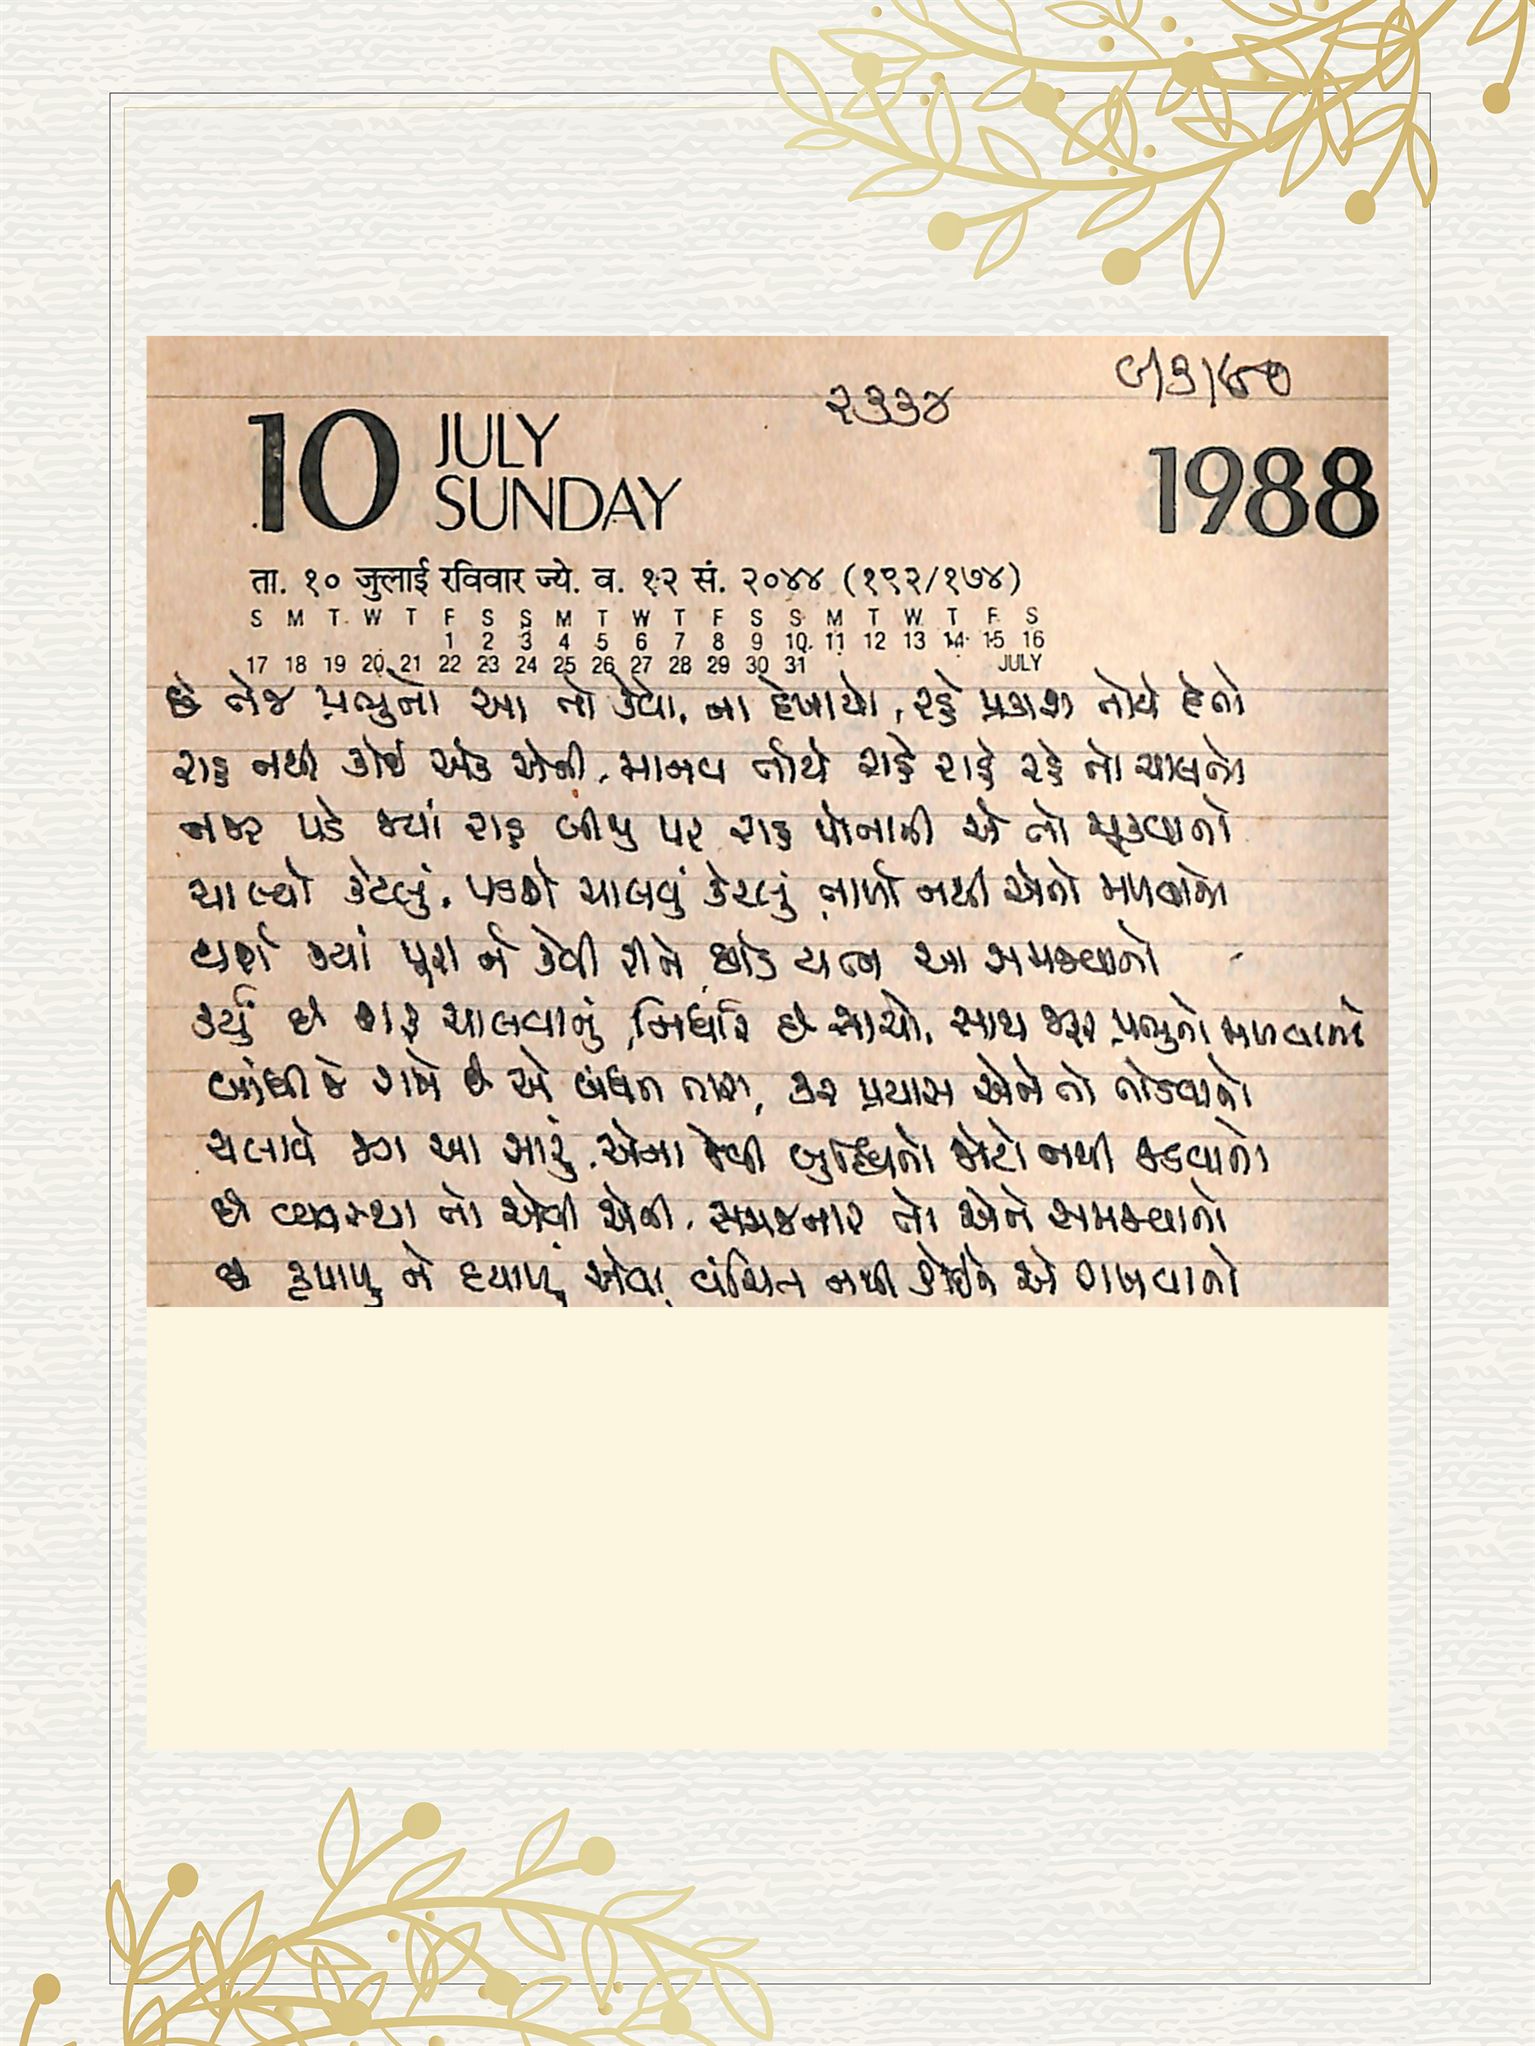 ૨૩૩૪
10 JULY SUNDAY 1988
ता. १० जुलाई रविवार ज्ये. व. १२ सं. २०४४ (१९२/१७४)
S M T W T F S S M T W T F S S M T W T F S
1 2 3 4 5 6 7 8 9 10 11 12 13 14 15 16
17 18 19 20 21 22 23 24 25 26 27 28 29 30 31 JULY
છે તેજ પ્રભુનો આ તો કેવો, ના દેખાયો, રહે પ્રકાશ તોયે દેતો
રાહ નથી કોઈ એક એની, માનવ તોયે રાહે રાહે રહે તો ચાલતો
નજર પડે જ્યાં રાહ બીજી પર રાહ પોતાની એ તો ચૂકવાનો
ચાલ્યો કેટલું, પડશે ચાલવું કેટલું તાળો નથી એનો મળવાનો
થાશે ક્યાં પૂરી ને કેવી રીતે છોડ યત્ન આ સમજવાનો
કર્યું છે શરૂ ચાલવાનું, નિર્ધાર છે સાચો, સાથ જરૂર પ્રભુનો મળવાનો
બાંધી જે રાખે છે એ બંધન તારા, કર પ્રયાસ એને તો તોડવાનો
ચલાવે જગ આ સારું, એના જેવી બુદ્ધિનો જોટો નથી જડવાનો
છે વ્યવસ્થા તો એવી એની, સમજનાર તો એને સમજવાનો
છે કૃપાળુ ને દયાળુ એવા, વંચિત નથી કોઈને એ રાખવાનો